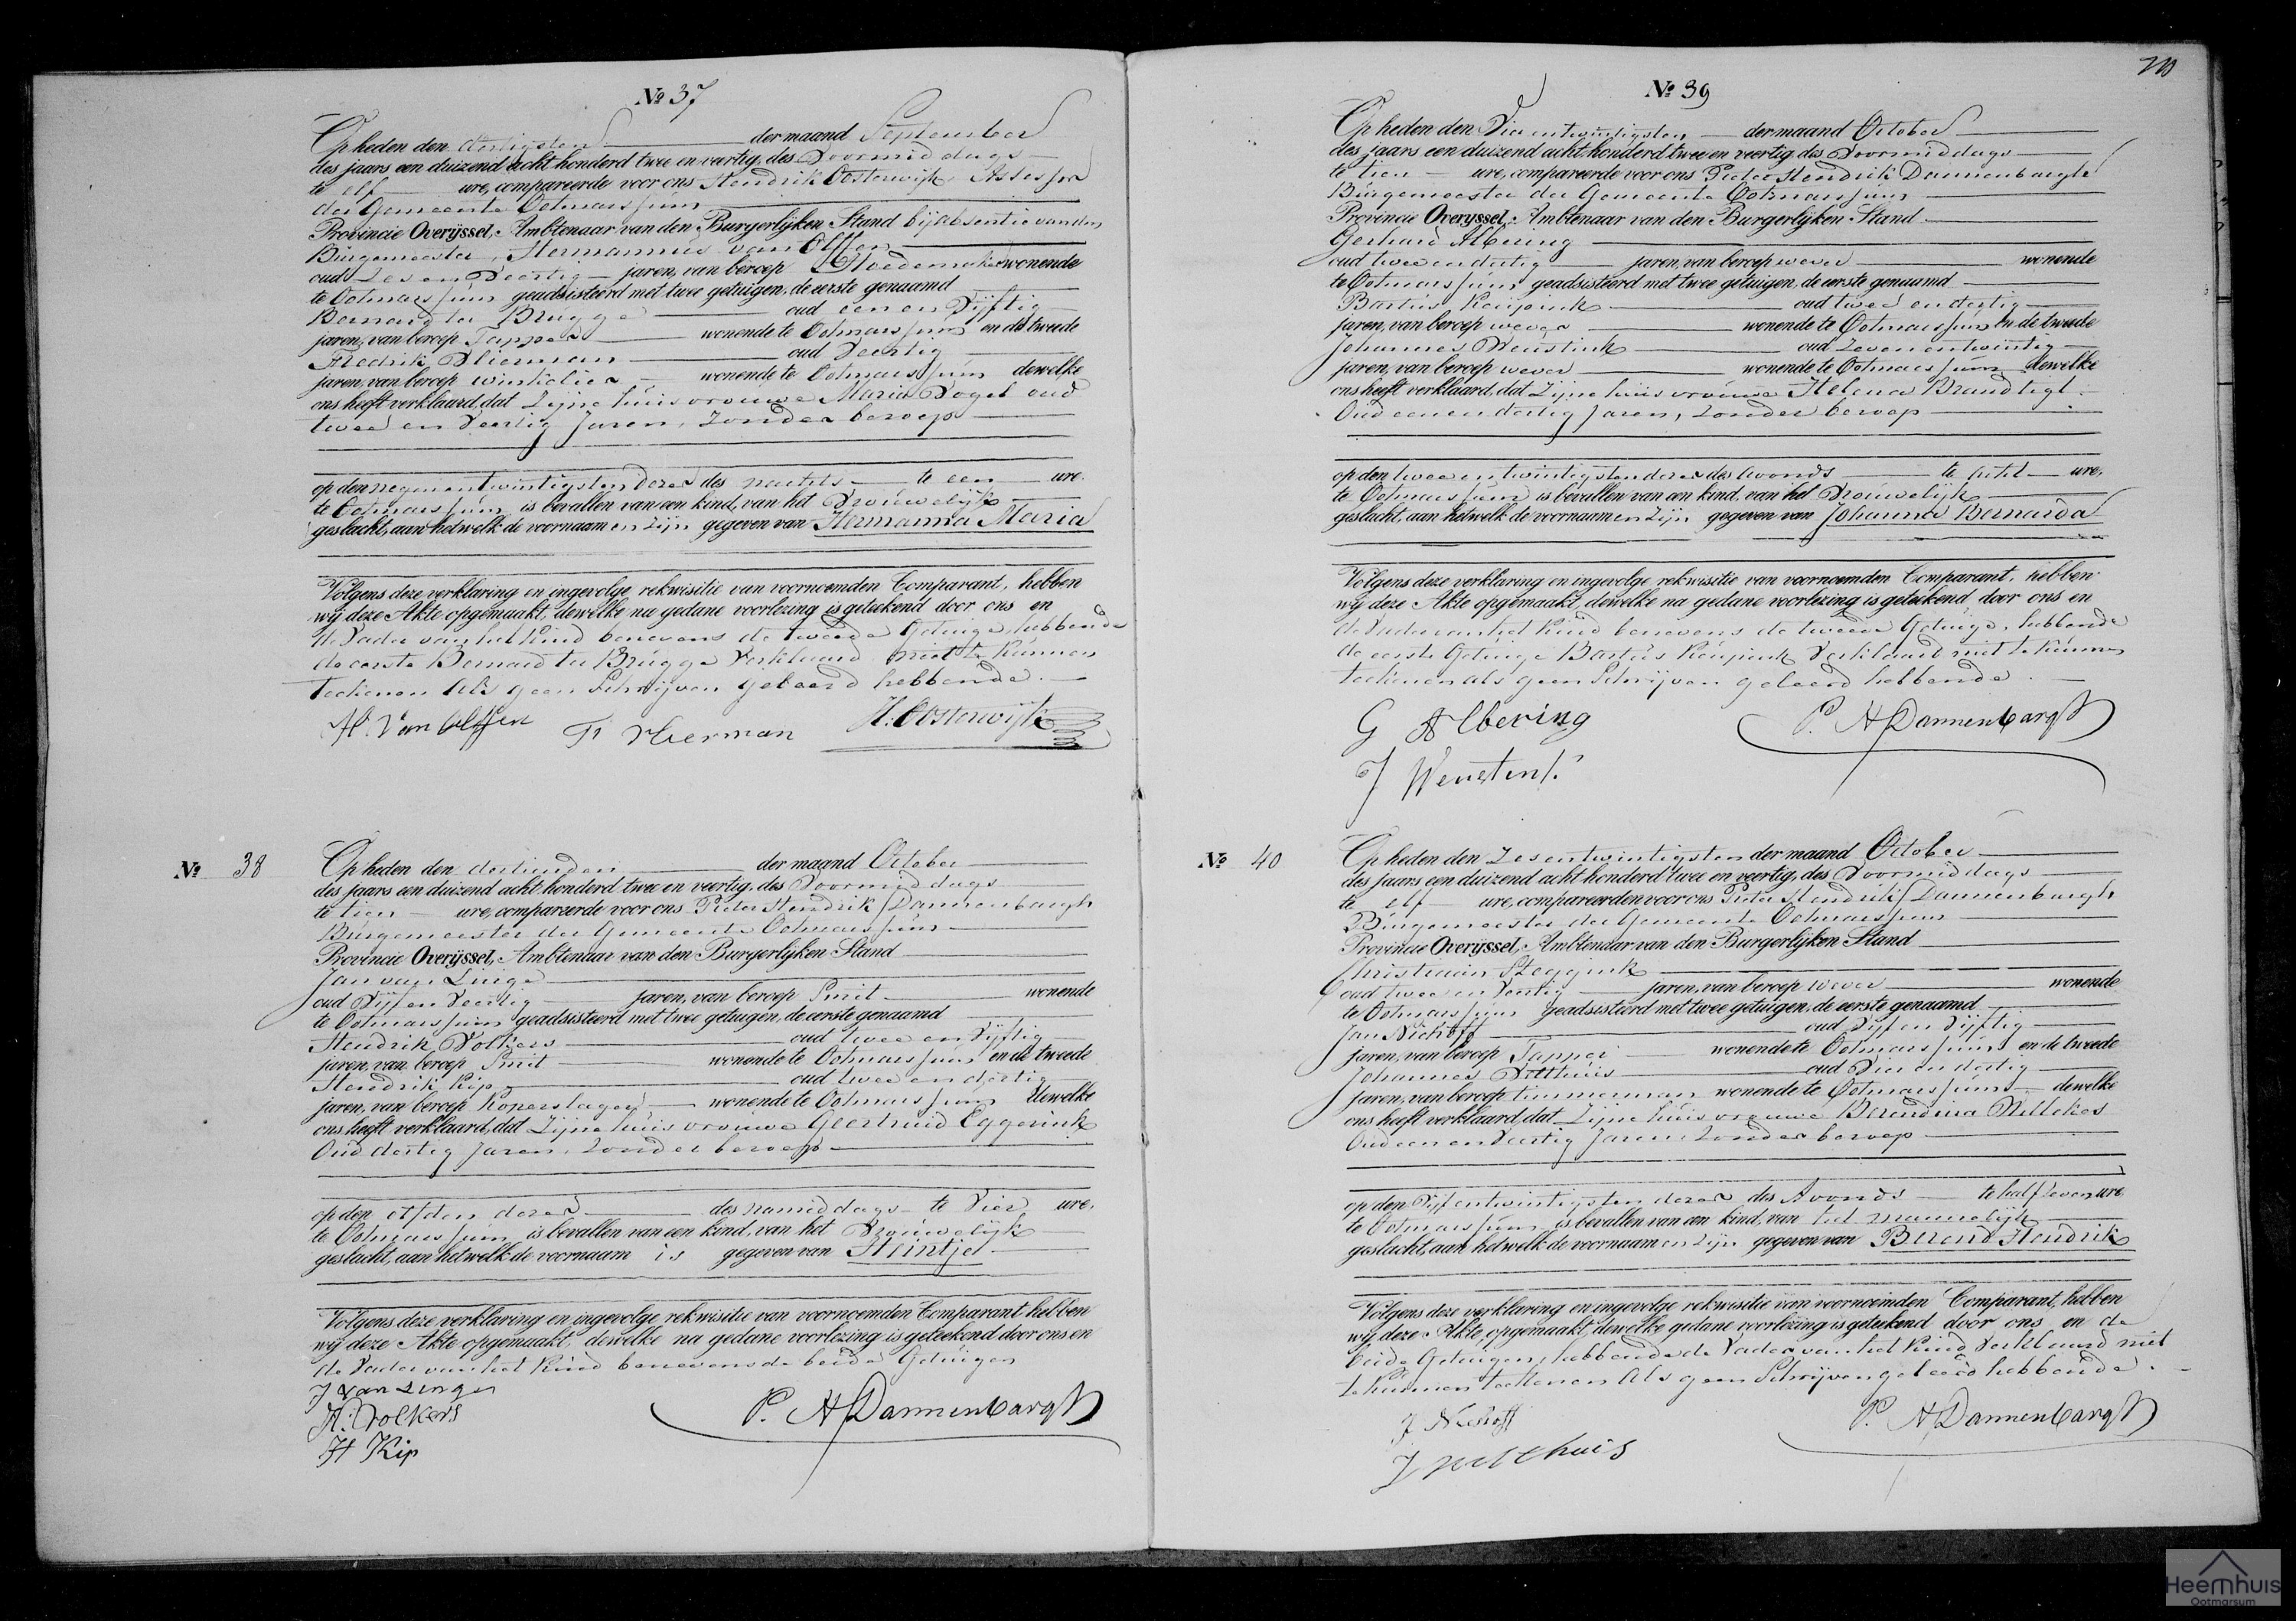 Nº 37
Op heden den dertigsten der maand September
des jaars een duizend acht honderd twee en veertig, des Voormiddags
te elf ure, compareerde voor ons Hendrik Oosterwijk Assessor
der Gemeente Ootmarssum
Provincie Overijssel, Ambtenaar van den Burgerlijken Stand bij absentie van den
Burgemeester, Hermannus van Olffen
oud Zes en Veertig jaren, van beroep wonende
te Ootmarssum geadsisteerd met twee getuigen, de eerste genaamd
Bernard ter Brugge oud een en Vijftig
jaren, van beroep Tapper wonende te Ootmarssum en de tweede
Fredrik Vlierman oud Veertig
jaren, van beroep winkelier wonende te Ootmarssum dewelke
ons heeft verklaard, dat Zijne huisvrouwe Maria Vogel oud
twee en Veertig Jaren, Zonder beroep
op den negenentwintigsten dezer des nachts te een ure.
te Ootmarssum is bevallen van een kind, van het Vrouwelijk
geslacht, aan hetwelk de voornaamen zijn gegeven van Hermanna Maria
Volgens deze verklaring en ingevolge rekwisitie van voornoemden Comparant, hebben
wij deze Akte opgemaakt, dewelke na gedane voorlezing is geteekend door ons en
de Vader van het Kind benevens de tweede Getuige, hebbende
de eerste Bernard ter Brugge Verklaard niet te Kunnen
teekenen als geen Schrijven geleerd hebbende.
H. Van Olffen F Vlierman H. Oosterwijk
Nº 38
Op heden den dertienden der maand October
des jaars een duizend acht honderd twee en veertig, des Voormiddags
te tien ure, compareerde voor ons Pieter Hendrik Dannenbargh
Burgemeester der Gemeente Ootmarssum
Provincie Overijssel, Ambtenaar van den Burgerlijken Stand
Jan van Linge
oud Vijf en Veertig jaren, van beroep Smit wonende
te Ootmarssum geadsisteerd met twee getuigen, de eerste genaamd
Hendrik Volkers oud twee en Vijftig
jaren, van beroep Smit wonende te Ootmarssum en de tweede
Hendrik Kip oud twee en dertig
jaren, van beroep Koperslager wonende te Ootmarssum dewelke
ons heeft verklaard, dat Zijne huisvrouwe Geertruid Eggerink
Oud dertig Jaren, Zonder beroep
op den elfden dezer des namiddags te Vier ure.
te Ootmarssum is bevallen van een kind, van het Vrouwelijk
geslacht, aan hetwelk de voornaam is gegeven van
Volgens deze verklaring en ingevolge rekwisitie van voornoemden Comparant hebben
wij deze Akte opgemaakt, dewelke na gedane voorlezing is geteekend door ons en
de Vader van het Kind benevens de beide Getuigen
J van Linge
H. Volkers P. H Dannenbargh
H Kip
Nº 39
Op heden den Vier entwintigsten der maand October
des jaars een duizend acht honderd twee en veertig des Voormiddags
te tien ure, compareerde voor ons Pieter Hendrik Dannenbargh
Burgemeester der Gemeente Ootmarssum
Provincie Overijssel, Ambtenaar van den Burgerlijken Stand
Gerhard Albering
oud twee en dertig jaren, van beroep wever wonende
te Ootmarssum geadsisteerd met twee getuigen, de eerste genaamd
Bartus Keupink oud twee en dertig
jaren, van beroep wever wonende te Ootmarssum en de tweede
Johannes Weustink oud Zeven entwintig
jaren, van beroep wever wonende te Ootmarssum dewelke
ons heeft verklaard, dat Zijne huisvrouwe Helena Brandligt
Oud eenendertig Jaren, Zonder beroep
op den twee entwintigsten dezer des avonds te acht ure.
te Ootmarssum is bevallen van een kind, van het Vrouwelijk
geslacht, aan hetwelk de voornaamen zijn gegeven van Johanna Bernarda
Volgens deze verklaring en ingevolge rekwisitie van voornoemden Comparant, hebben
wij deze Akte opgemaakt, dewelke na gedane voorlezing is geteekend door ons en
de Vader van het Kind benevens de tweede Getuige, hebbende
de eerste Getuige Bartus Keupink Verklaard niet te Kunnen
teekenen als geen Schrijven geleerd hebbende.
G Albering P. H Dannenbargh
J Weustink
Nº 40
Op heden den Zesentwintigsten der maand October
des jaars een duizend acht honderd twee en veertig, des Voormiddags
te elf ure, compareerden voor ons Pieter Hendrik Dannenbargh
Burgemeester der Gemeente Ootmarssum
Provincie Overijssel, Ambtenaar van den Burgerlijken Stand
Christiaan Steggink
oud twee en Veertig jaren, van beroep wever wonende
te Ootmarssum geadsisteerd met twee getuigen, de eerste genaamd
Jan Niehoff oud Vijf en Vijftig
jaren, van beroep Tapper wonende te Ootmarssum en de tweede
Johannes Velthuis oud Vier en dertig
jaren, van beroep timmerman wonende te Ootmarssum dewelke
ons heeft verklaard, dat Zijne huisvrouwe Berendina
Oud een en Veertig Jaren Zonder beroep
op den Vijfentwintigsten dezer des Avonds te half zeven ure
te Ootmarssum is bevallen van een kind, van het mannelijk
geslacht, aan hetwelk de voornaamen zijn gegeven van Berend Hendrik
Volgens deze verklaring en ingevolge rekwisitie van voornoemden Comparant, hebben
wij deze Akte, opgemaakt, dewelke gedane voorlezing is geteekend door ons en de
beide Getuigen, hebbende de Vader van het Kind Verklaard niet
te Kunnen teekenen Als geen Schrijven geleerd hebbende.
J Niehoff P. H Dannenbargh
J Velthuis
Heemhuis
Ootmarsum